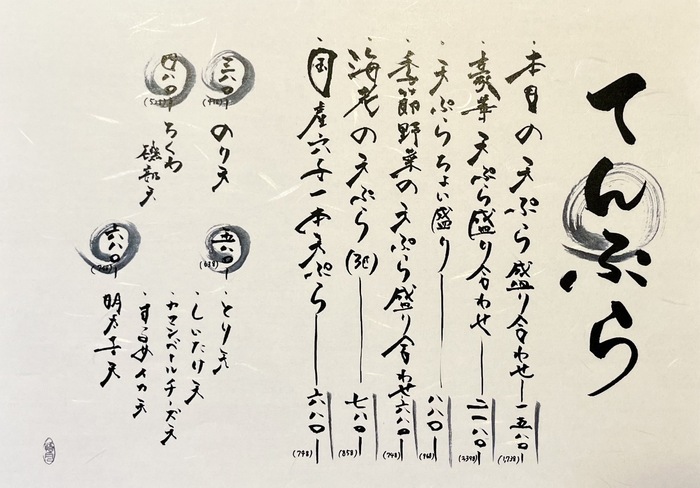 てんぷら
・本日の天ぷら盛り合わせ 一五八〇 (1,738)
・豪華 天ぷら盛り合わせ 二一八〇 (2,398)
・天ぷらちょい盛り 八八〇 (968)
・季節野菜の天ぷら盛り合わせ 六八〇 (748)
・海老の天ぷら(3尾) 七八〇 (858)
・国産穴子一本天ぷら 六八〇 (748)
三八〇 (418)
・のり天
四八〇 (528)
・ちくわ磯部天
五八〇 (638)
・とり天
・しいたけ天
・カマンベールチーズ天
・するめイカ天
六八〇 (748)
明太子天